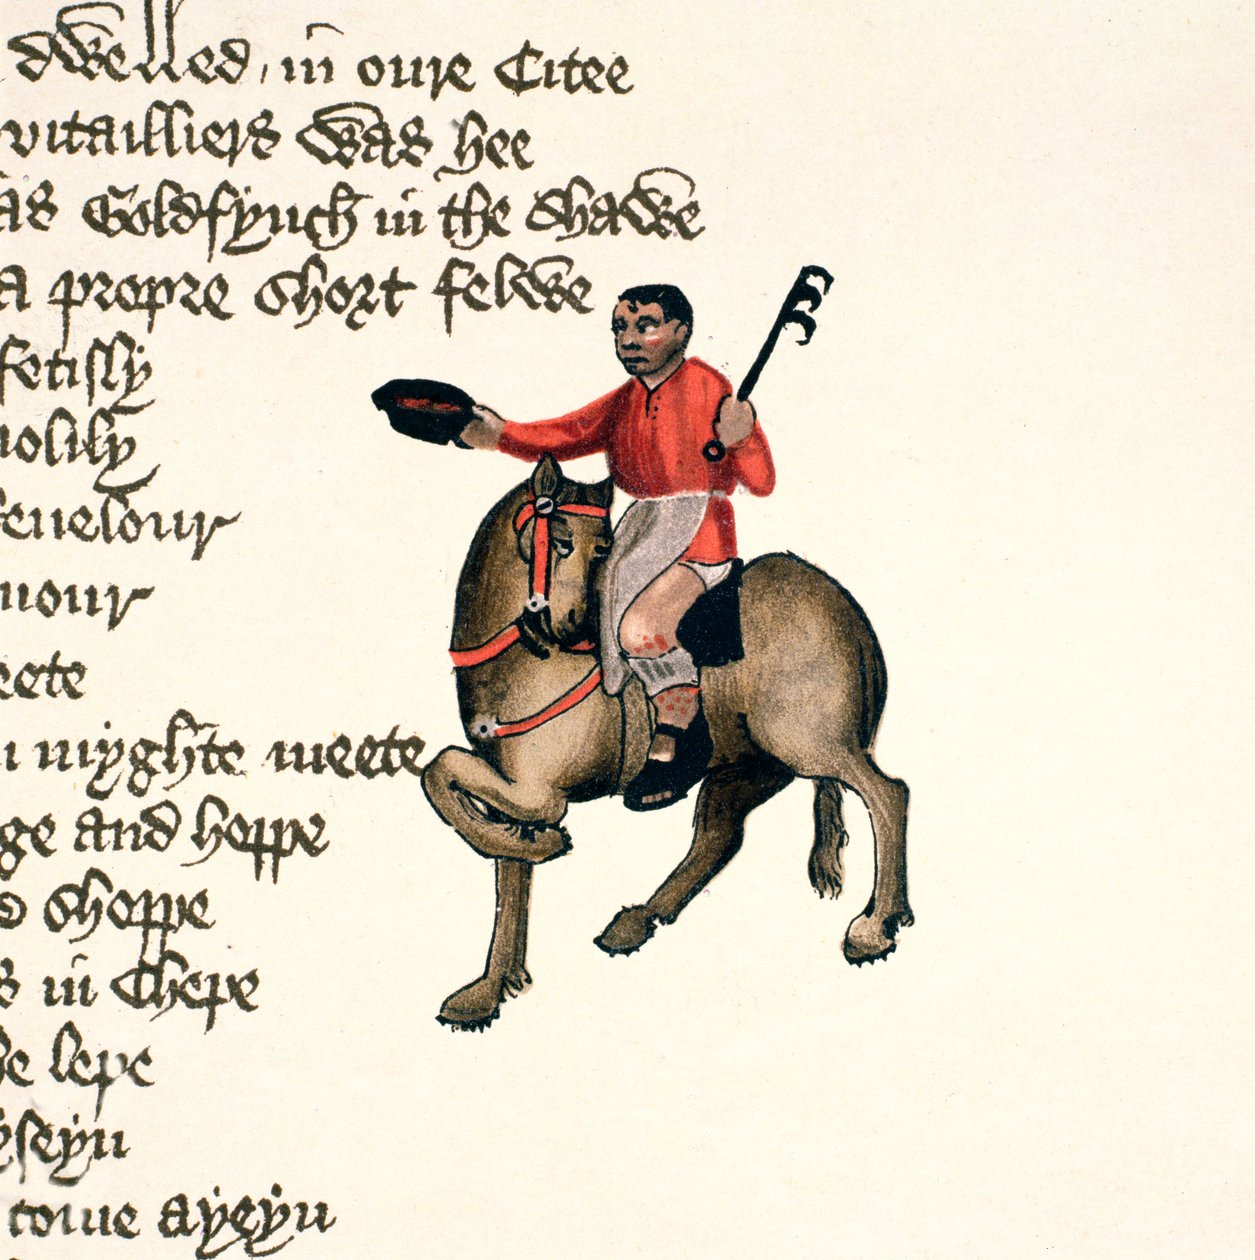 dwelled in oure Citee
vitailliers was hee
as Goldfynch in the shawe
a propre short felwe
fetisly
iolily
reuelour
mour
eete
myghte meete
ge and hoppe
shoppe
s in Chepe
he lepe
yseyn
come ayeyn